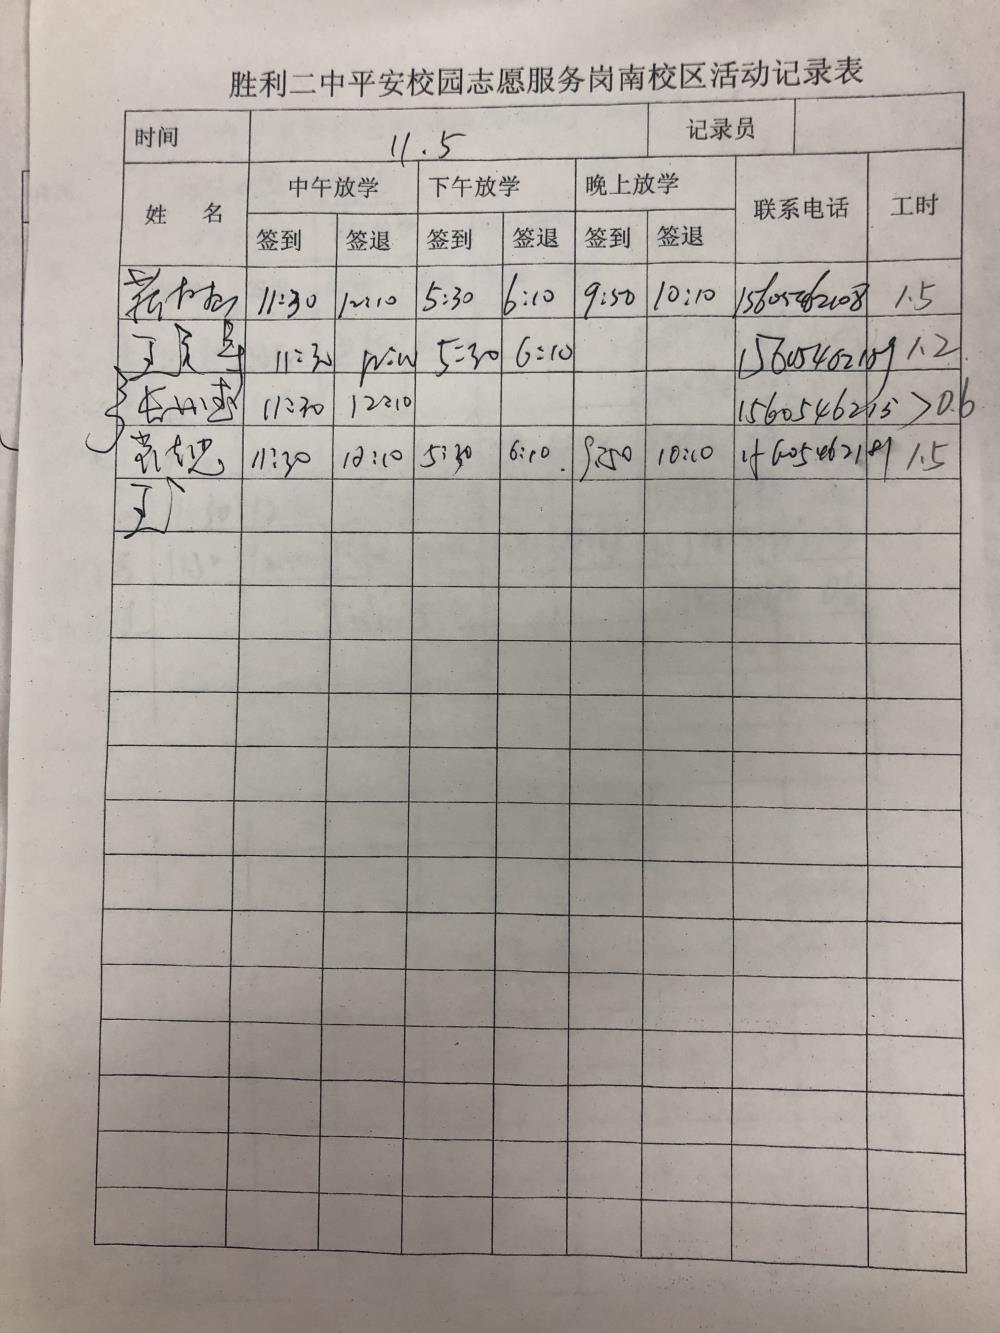 胜利二中平安校园志愿服务岗南校区活动记录表
时间 11.5 记录员
姓 名 中午放学 下午放学 晚上放学 联系电话 工时
签到 签退 签到 签退 签到 签退
11:30 12:10 5:30 6:10 9:50 10:10 15605462108 1.5
王 11:30 5:30 6:10 1.2
11:30 12:10 0.6
11:30 12:10 5:30 6:10 9:50 10:10 1.5
王